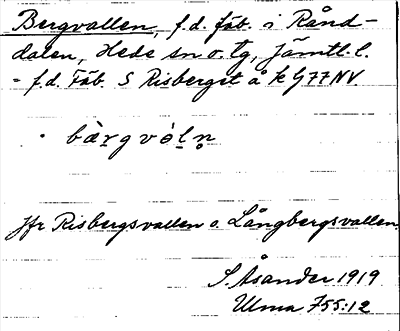 Bergvallen, f.d. fäb. i Rånd-
dalen, Hede sn o. tg, Jämtl. l.
= f.d. Fäb. S Risberget å k G77NV.
• bàrgvòln
Jfr Risbergsvallen o. Långbergsvallen.
S. Åsander 1919
Ulma 755:12